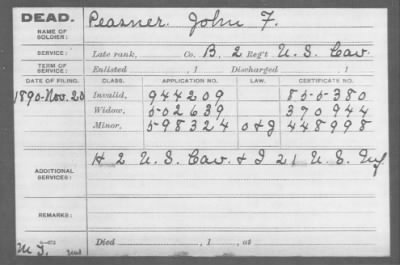 DEAD.
NAME OF SOLDIER: Peasner, John F.
SERVICE: Late rank, Co. B, 2 Reg't U. S. Cav.
TERM OF SERVICE: Enlisted , 1 Discharged , 1
DATE OF FILING. CLASS. APPLICATION NO. LAW. CERTIFICATE NO.
1890-Nov. 20 Invalid, 944209 855380
Widow, 502639 370944
Minor, 598324 448998
ADDITIONAL SERVICES: H 2 U. S. Cav. & I 21 U. S. Inf
REMARKS:
Died , 1 , at